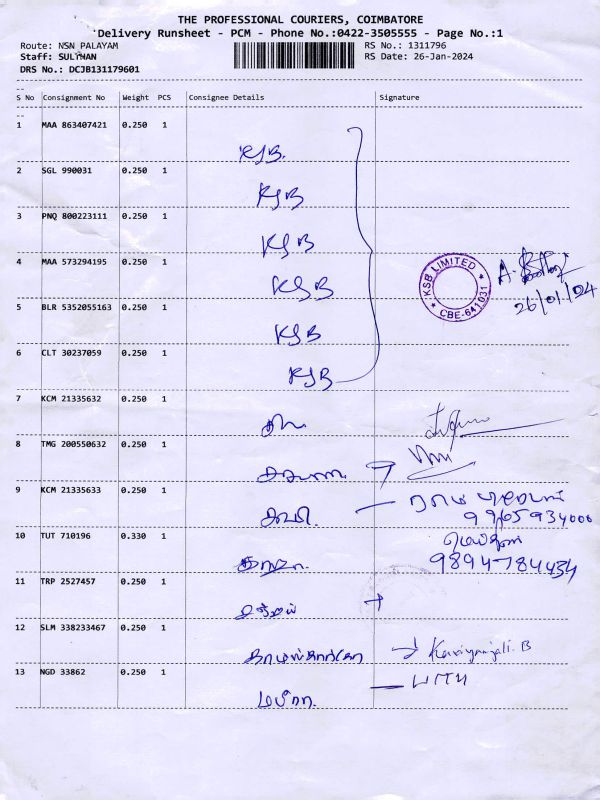 THE PROFESSIONAL COURIERS, COIMBATORE
Delivery Runsheet - PCM - Phone No.:0422-3505555 - Page No.:1
Route: NSN PALAYAM
RS No.: 1311796
Staff: SULTHAN
RS Date: 26-Jan-2024
DRS No.: DCJB131179601
S No Consignment No Weight PCS Consignee Details Signature
1 MAA 863407421 0.250 1
KSB
2 SGL 990031 0.250 1
KSB
3 PNQ 800223111 0.250 1
KSB
4 MAA 573294195 0.250 1
KSB
KSB LIMITED
CBE-641031
26/01/24
5 BLR 5352055163 0.250 1
KSB
6 CLT 30237059 0.250 1
KSB
7 KCM 21335632 0.250 1
8 TMG 200550632 0.250 1
9 KCM 21335633 0.250 1
கவி.
9965934000
10 TUT 710196 0.330 1
9894784434
11 TRP 2527457 0.250 1
12 SLM 338233467 0.250 1
Kaviyanjali. B
13 NGD 33862 0.250 1